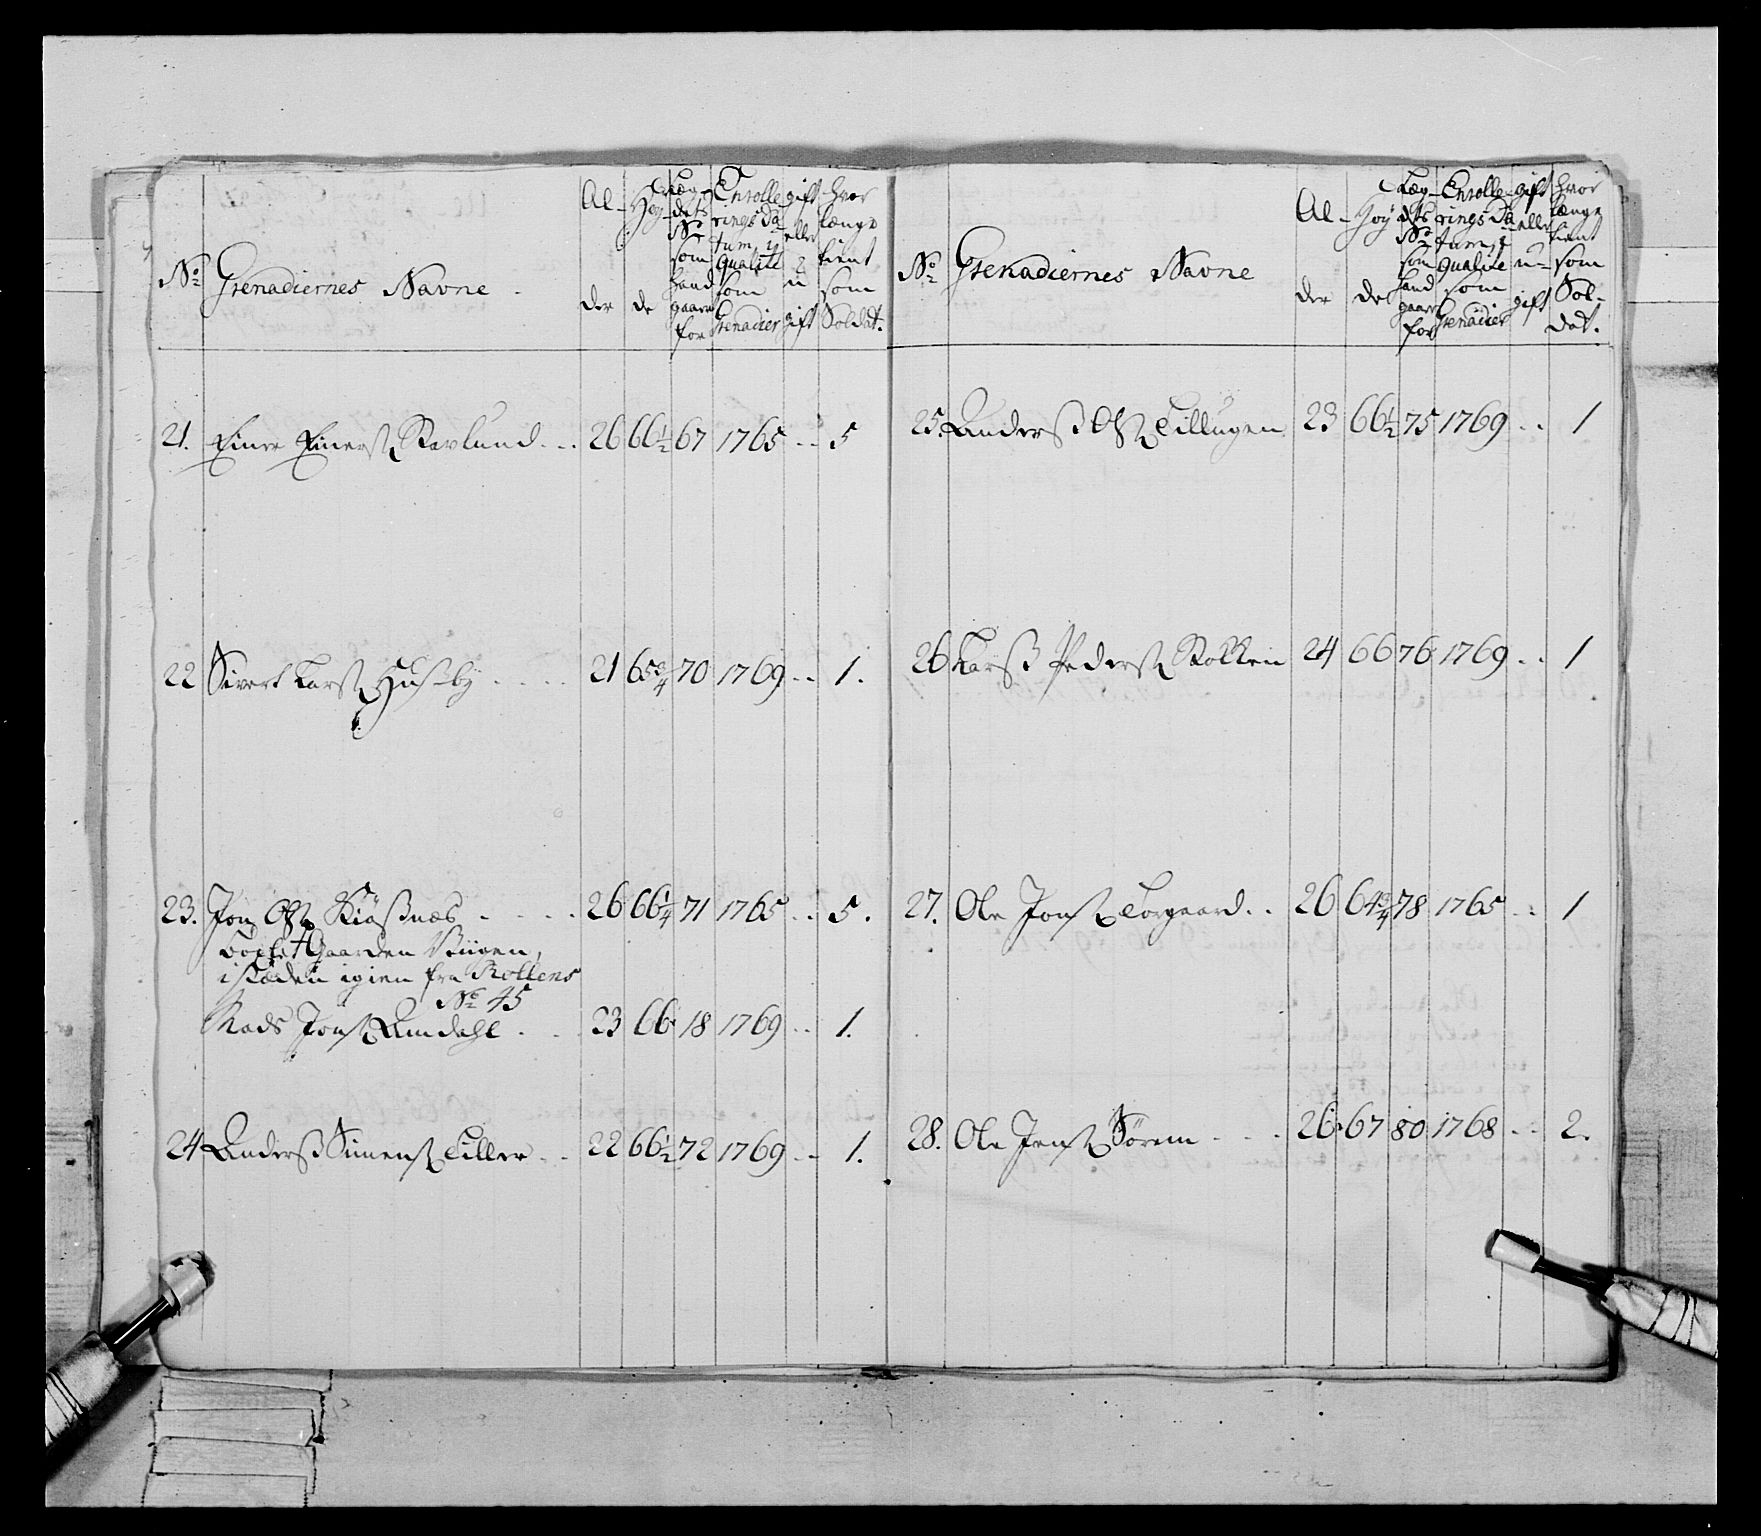 No Grenadiernes Navne Alder Høyde Lægdets No som hand gaar for Enrollerings Datum, i Qualite som Grenadier gift eller u gift hvor længe tient som Soldat.
21. Einer Einers. Kavlund 26 66 1/2 67 1765 5
22 Sivert Lars. Husby 21 65 3/4 70 1769 1.
23. Jon Ols. 26 66 1/4 71 1765 5.
Gaarden
i stæden igien fra Rollens
No 45
Mads Jons. Amdahl 23 66 18 1769 1.
24 Anders Simens. Tiller 22 66 1/2 72 1769 1.
No Grenadiernes Navne Alder Høyde Lægdets No som hand gaar for Enrollerings Datum i Qualite som Grenadier gift eller u-gift hvor længe tient som Soldat.
25. Anders Ols. 23 66 1/2 75 1769 1
26 Lars Peders. 24 66 76 1769 1
27. Ole Jons. Torgaard 26 64 3/4 78 1765 1
28. Ole Jens. Sørem 26 67 80 1768 2.